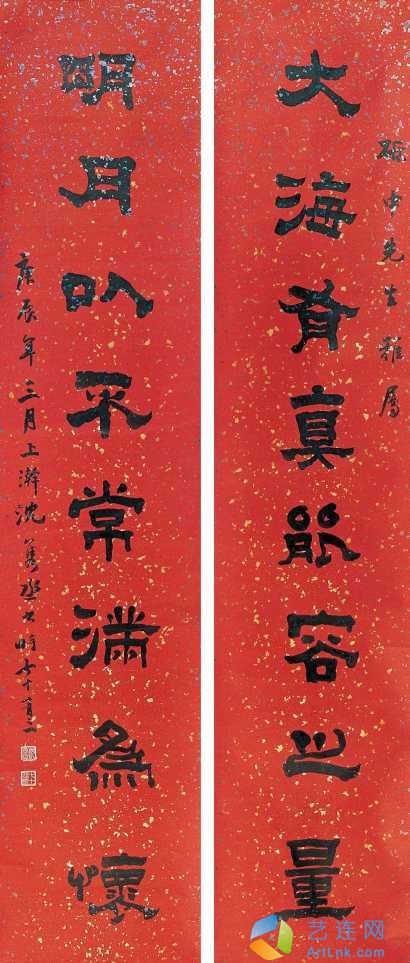 中先生雅屬
大海有真能容之量
明月以不常滿為懷
庚辰年三月上澣沈雋丞書時
艺连网
ArtLnk.com